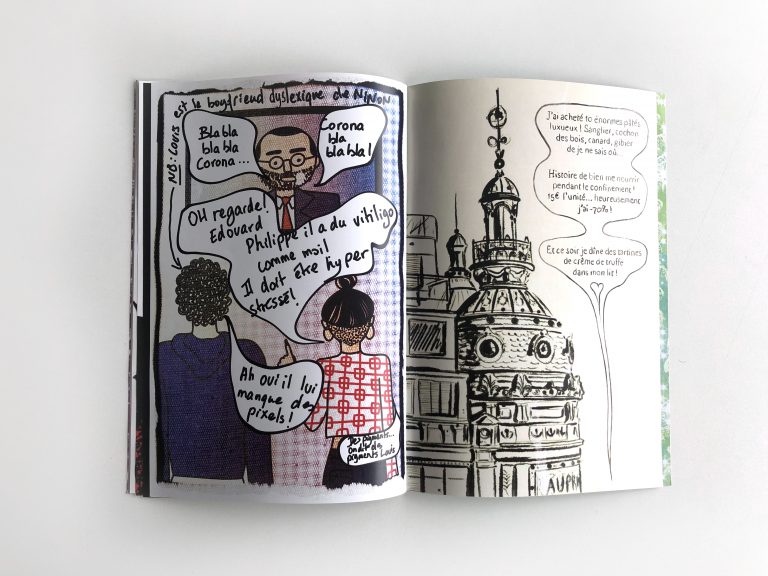 NB : Louis est le boyfriend dyslexique de NINON
Bla bla
bla bla
Corona ...
Corona
bla
bla
bla bla !
OH regarde !
Edouard
Philippe il a du vitiligo
comme moi !
Il doit être hyper
stressé !
Ah oui il lui
manque des
pixels !
Des pigments...
on dit des
pigments Louis
J'ai acheté 10 énormes pâtés
luxueux ! Sanglier, cochon
des bois, canard, gibier
de je ne sais où.
Histoire de bien me nourrir
pendant le confinement !
15€ l'unité... heureusement
j'ai -70% !
Et ce soir je dîne des tartines
de crème de truffe
dans mon lit !